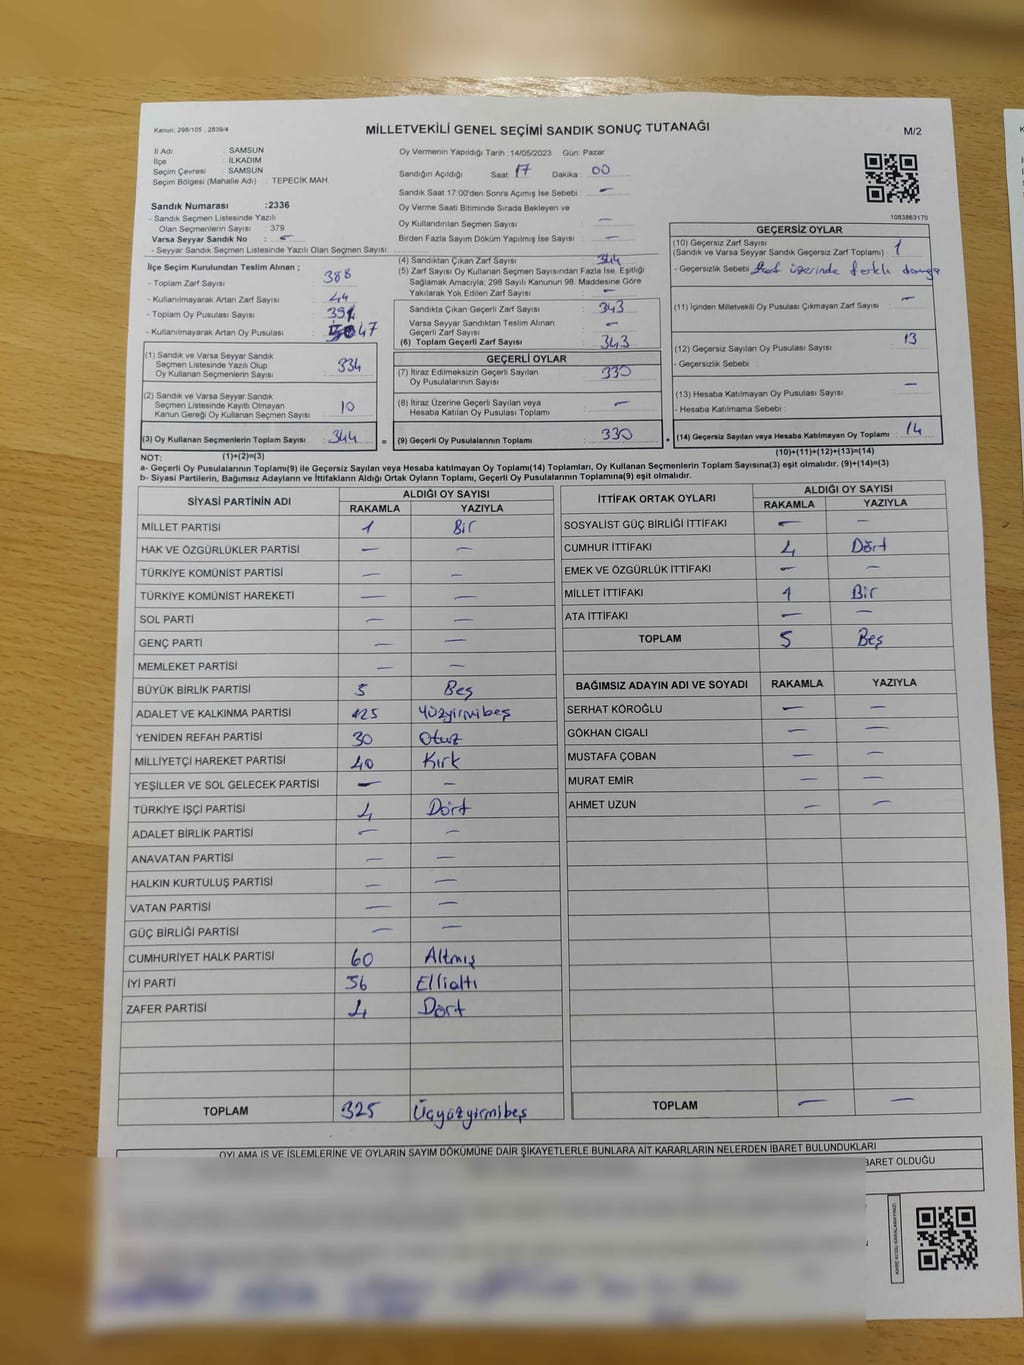 Kanun, 298/105 , 2839/4
MİLLETVEKİLİ GENEL SEÇİMİ SANDIK SONUÇ TUTANAĞI
M/2
İl Adı : SAMSUN
İlçe : İLKADIM
Seçim Çevresi : SAMSUN
Seçim Bölgesi (Mahalle Adı) : TEPECİK MAH.
Sandık Numarası :2336
- Sandık Seçmen Listesinde Yazılı
Olan Seçmenlerin Sayısı 379
Varsa Seyyar Sandık No : –
- Seyyar Sandık Seçmen Listesinde Yazılı Olan Seçmen Sayısı:
Oy Vermenin Yapıldığı Tarih :14/05/2023 Gün: Pazar
Sandığın Açıldığı Saat: 17 Dakika : 00
Sandık Saat 17:00'den Sonra Açımış İse Sebebi : –
Oy Verme Saati Bitiminde Sırada Bekleyen ve
Oy Kullandırılan Seçmen Sayısı : –
Birden Fazla Sayım Döküm Yapılmış İse Sayısı : –
1083863170
İlçe Seçim Kurulundan Teslim Alınan ;
- Toplam Zarf Sayısı : 388
- Kullanılmayarak Artan Zarf Sayısı : 44
- Toplam Oy Pusulası Sayısı : 391
- Kullanılmayarak Artan Oy Pusulası : 47
(1) Sandık ve Varsa Seyyar Sandık
Seçmen Listesinde Yazılı Olup
Oy Kullanan Seçmenlerin Sayısı : 334
(2) Sandık ve Varsa Seyyar Sandık
Seçmen Listesinde Kayıtlı Olmayan
Kanun Gereği Oy Kullanan Seçmen Sayısı : 10
(3) Oy Kullanan Seçmenlerin Toplam Sayısı : 344 =
(1)+(2)=(3)
(4) Sandıktan Çıkan Zarf Sayısı : 344
(5) Zarf Sayısı Oy Kullanan Seçmen Sayısından Fazla İse, Eşitliği
Sağlamak Amacıyla; 298 Sayılı Kanunun 98. Maddesine Göre
Yakılarak Yok Edilen Zarf Sayısı : –
Sandıkta Çıkan Geçerli Zarf Sayısı : 343
Varsa Seyyar Sandıktan Teslim Alınan
Geçerli Zarf Sayısı : –
(6) Toplam Geçerli Zarf Sayısı : 343
GEÇERLİ OYLAR
(7) İtiraz Edilmeksizin Geçerli Sayılan
Oy Pusulalarının Sayısı : 330
(8) İtiraz Üzerine Geçerli Sayılan veya
Hesaba Katılan Oy Pusulası Toplamı : –
(9) Geçerli Oy Pusulalarının Toplamı : 330 +
GEÇERSİZ OYLAR
(10) Geçersiz Zarf Sayısı
(Sandık ve Varsa Seyyar Sandık Geçersiz Zarf Toplamı) : 1
- Geçersizlik Sebebi : Zarf üzerinde farklı damga
(11) İçinden Milletvekili Oy Pusulası Çıkmayan Zarf Sayısı : –
(12) Geçersiz Sayılan Oy Pusulası Sayısı : 13
- Geçersizlik Sebebi :
(13) Hesaba Katılmayan Oy Pusulası Sayısı : –
- Hesaba Katılmama Sebebi :
(14) Geçersiz Sayılan veya Hesaba Katılmayan Oy Toplamı : 14
(10)+(11)+(12)+(13)=(14)
NOT:
a- Geçerli Oy Pusulalarının Toplamı(9) ile Geçersiz Sayılan veya Hesaba katılmayan Oy Toplamı(14) Toplamları, Oy Kullanan Seçmenlerin Toplam Sayısına(3) eşit olmalıdır. (9)+(14)=(3)
b- Siyasi Partilerin, Bağımsız Adayların ve İttifakların Aldığı Ortak Oyların Toplamı, Geçerli Oy Pusulalarının Toplamına(9) eşit olmalıdır.
SİYASİ PARTİNİN ADI ALDIĞI OY SAYISI
RAKAMLA YAZIYLA
MİLLET PARTİSİ 1 Bir
HAK VE ÖZGÜRLÜKLER PARTİSİ – –
TÜRKİYE KOMÜNİST PARTİSİ – –
TÜRKİYE KOMÜNİST HAREKETİ – –
SOL PARTİ – –
GENÇ PARTİ – –
MEMLEKET PARTİSİ – –
BÜYÜK BİRLİK PARTİSİ 5 Beş
ADALET VE KALKINMA PARTİSİ 125 Yüzyirmibeş
YENİDEN REFAH PARTİSİ 30 Otuz
MİLLİYETÇİ HAREKET PARTİSİ 40 Kırk
YEŞİLLER VE SOL GELECEK PARTİSİ – –
TÜRKİYE İŞÇİ PARTİSİ 4 Dört
ADALET BİRLİK PARTİSİ – –
ANAVATAN PARTİSİ – –
HALKIN KURTULUŞ PARTİSİ – –
VATAN PARTİSİ – –
GÜÇ BİRLİĞİ PARTİSİ – –
CUMHURİYET HALK PARTİSİ 60 Altmış
İYİ PARTİ 56 Ellialtı
ZAFER PARTİSİ 4 Dört
TOPLAM 325 Üçyüzyirmibeş
İTTİFAK ORTAK OYLARI ALDIĞI OY SAYISI
RAKAMLA YAZIYLA
SOSYALİST GÜÇ BİRLİĞİ İTTİFAKI – –
CUMHUR İTTİFAKI 4 Dört
EMEK VE ÖZGÜRLÜK İTTİFAKI – –
MİLLET İTTİFAKI 1 Bir
ATA İTTİFAKI – –
TOPLAM 5 Beş
BAĞIMSIZ ADAYIN ADI VE SOYADI RAKAMLA YAZIYLA
SERHAT KÖROĞLU – –
GÖKHAN CIGALI – –
MUSTAFA ÇOBAN – –
MURAT EMİR – –
AHMET UZUN – –
TOPLAM – –
OYLAMA İŞ VE İŞLEMLERİNE VE OYLARIN SAYIM DÖKÜMÜNE DAİR ŞİKAYETLERLE BUNLARA AİT KARARLARIN NELERDEN İBARET BULUNDUKLARI
BARET OLDUĞU